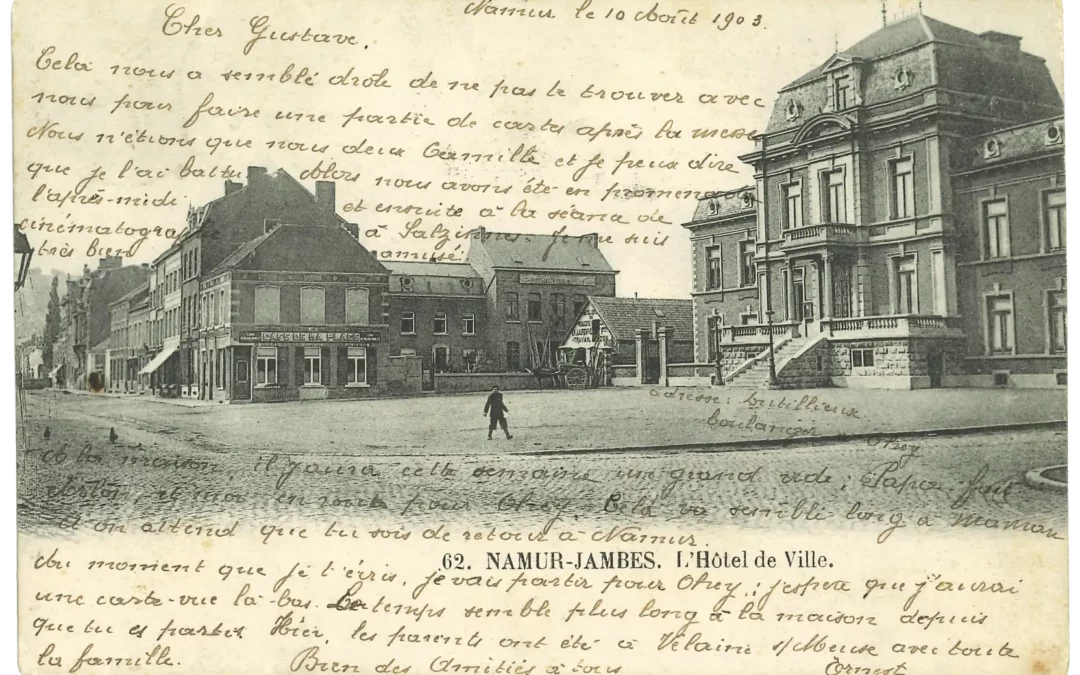 Namur le 10 Août 1903.
Cher Gustave,
Cela nous a semblé drôle de ne pas te trouver avec
nous pour faire une partie de cartes après la messe
Nous n'étions que nous deux Camille et je peux dire
que je l'ai battu Alors nous avons été en promenade
l'après-midi et ensuite à la séance de
cinématographe à Salzinnes. Je me suis
très bien amusé.
CAFÉ DE LA PLACE
adresse: Lutillieux
boulanger Ohey
A la maison il y aura cette semaine un grand vide; Papa fait
et moi en route pour Ohey. Cela va sembler long à maman
et on attend que tu sois de retour à Namur.
62. NAMUR-JAMBES. L'Hôtel de Ville.
Au moment que je t'écris, je vais partir pour Ohey; j'espère que j'aurai
une carte-vue là-bas. Le temps semble plus long à la maison depuis
que tu es parti. Hier, les parents ont été à Vélaine s/Meuse avec toute
la famille. Bien des Amitiés à tous Ernest